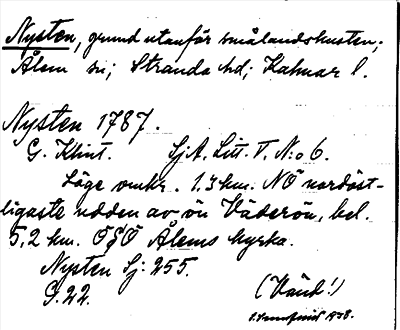 Nysten, grund utanför smålandskusten;
Ålem sn; Stranda hd; Kalmar l.
Nysten 1787.
G. Klint. SjA. Litt. T. N:o 6.
Läge omkr. 1.3 km. NÖ nordöst-
ligaste udden av ön Väderön, bel.
5,2 km. ÖSÖ Ålems kyrka.
Nysten Sj: 255.
G. 22. (Vänd!)
1938.